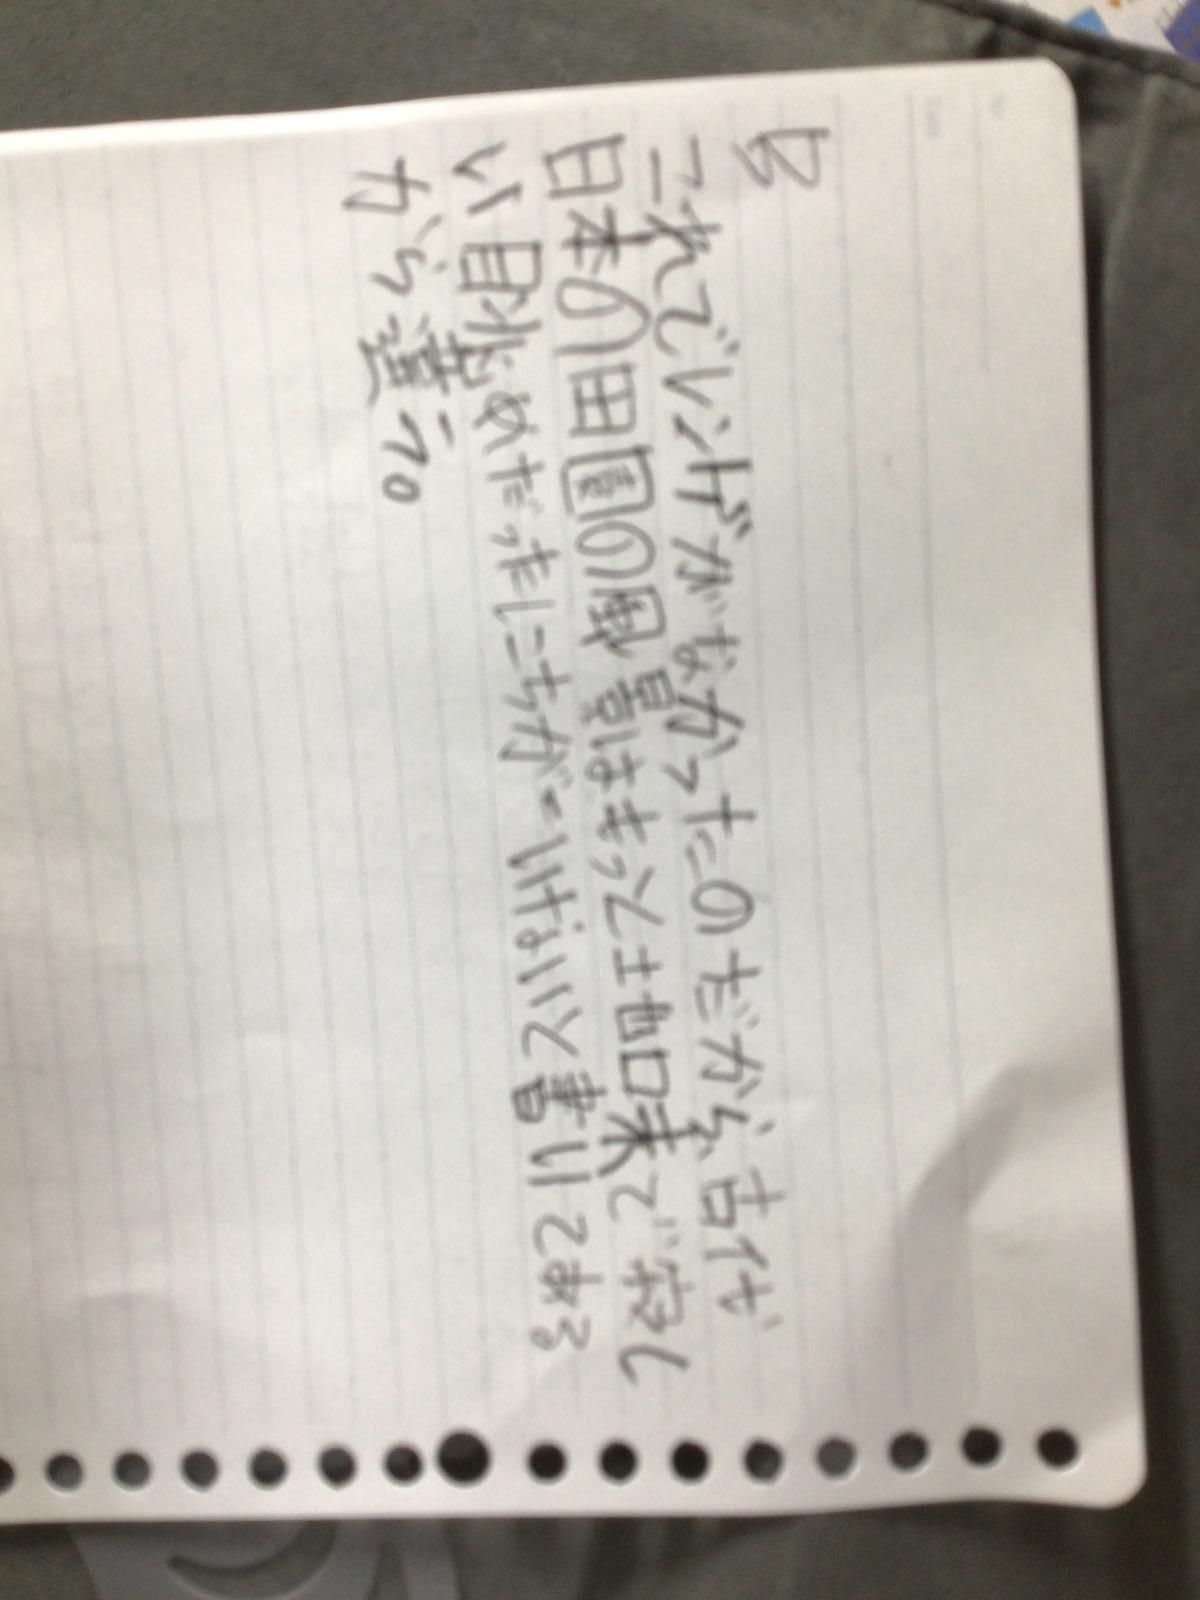 B
これでレンゲがなかったのだから、古代
日本の田園の風景はもっと地味で寂し
い眺めだったにちがいないと書いてある
から違う。